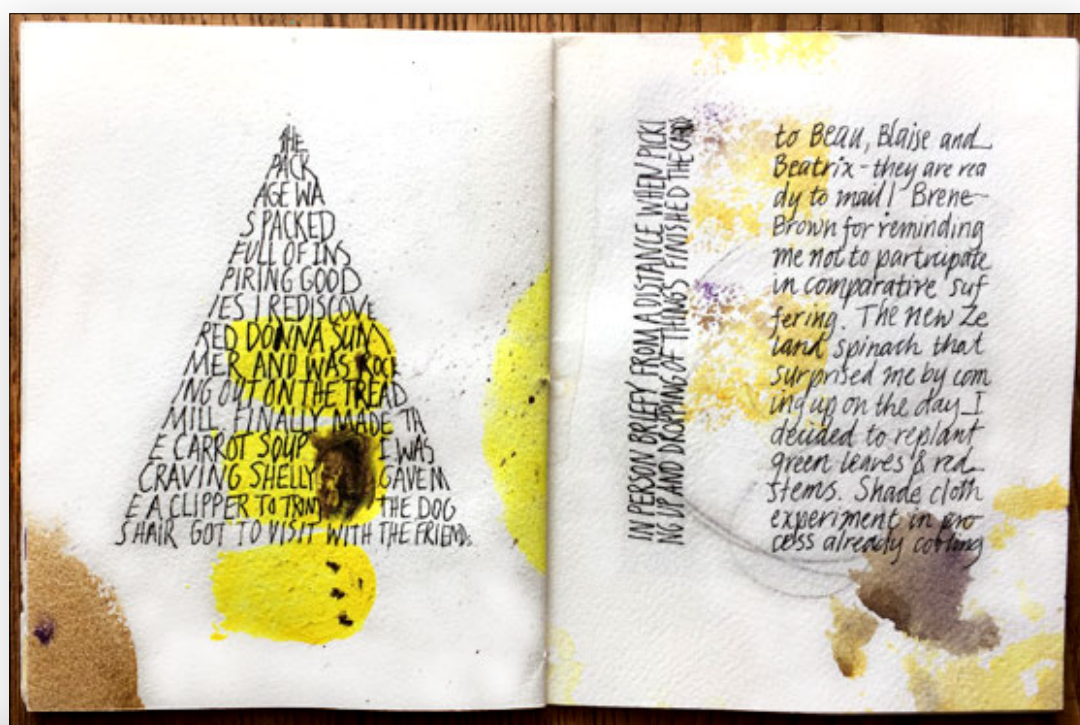 THE
PACK
AGE WA
S PACKED
FULL OF INS
PIRING GOOD
IES I REDISCOVE
RED DONNA SUM
MER AND WAS ROCK
ING OUT ON THE TREAD
MILL FINALLY MADE TH
E CARROT SOUP I WAS
CRAVING SHELLY GAVE M
E A CLIPPER TO TRIM THE DOG
S HAIR GOT TO VISIT WITH THE FRIENDS
IN PERSON BRIEFY FROM A DISTANCE WHEN PICKI
NG UP AND DROPPING OF THINGS FINISHED THE CARDS
to Beau, Blaise and
Beatrix - they are rea
dy to mail! Brene
Brown for reminding
me not to participate
in comparative suf
fering. The new Ze
land spinach that
surprised me by com
ing up on the day I
decided to replant
green leaves & red
stems. Shade cloth
experiment in pro
cess already cooling